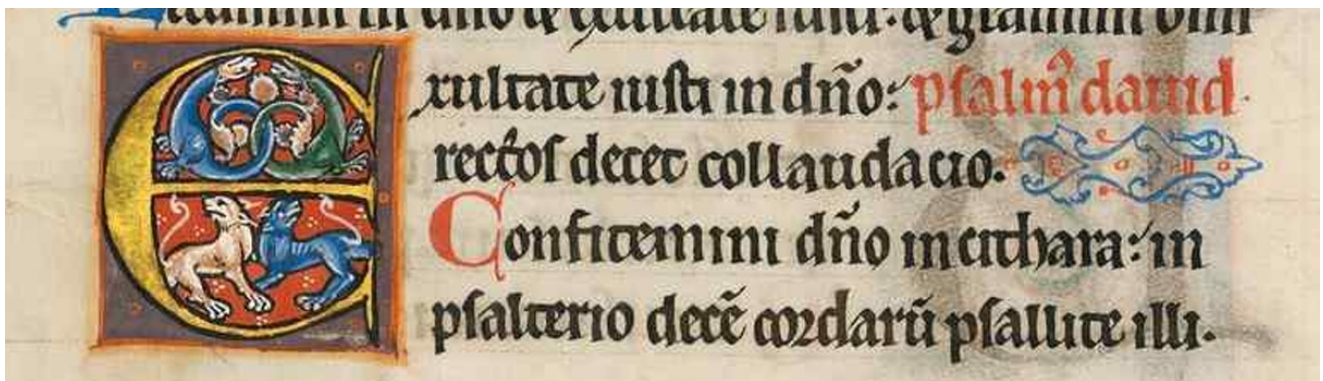 Letamini in dno ⁊ exultate iusti: ⁊ gloriamini omnes
Exultate iusti in dño: psalm̃ dauid
rectos decet collaudacio.
Confitemini dño in cithara: in
psalterio decẽ cordarũ psallite illi.